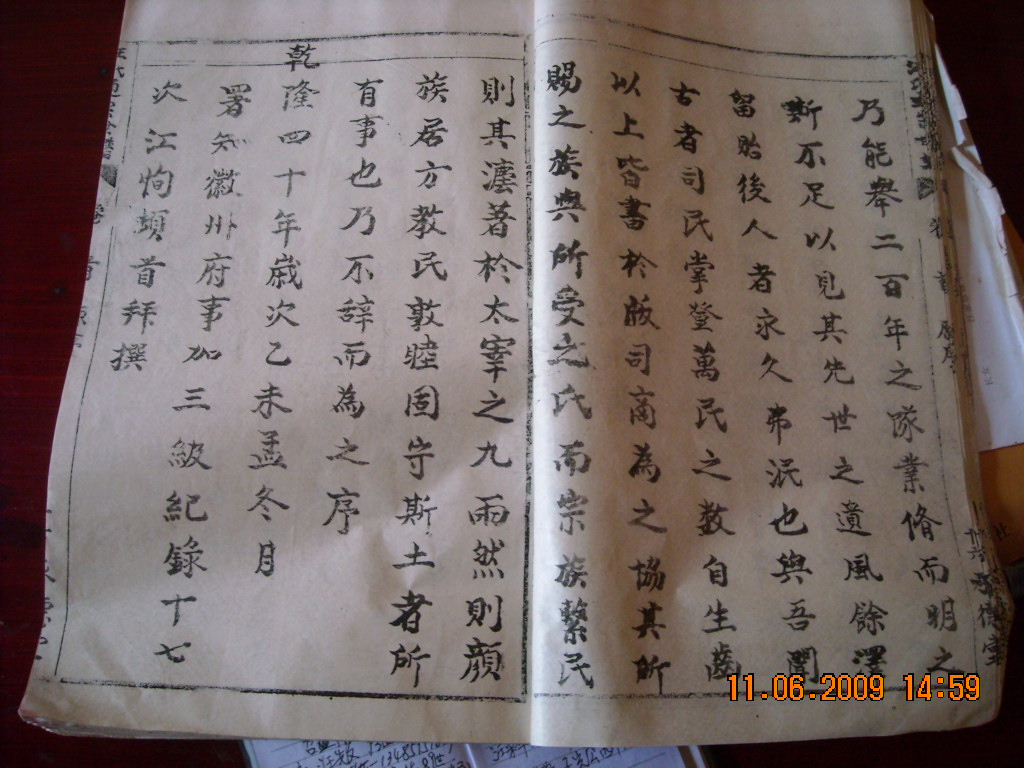 乃能舉二百年之隊業脩而明之
斯不足以見其先世之遺風餘澤
留貽後人者永久弗泯也與吾聞
古者司民掌登萬民之數自生齒
以上皆書於版司商為之協其所
賜之族與所受之氏而宗族繫民
則其瀍著於太宰之九兩然則顏
族居方教民敦睦固守斯土者所
有事也乃不辭而為之序
乾
隆四十年歲次乙未孟冬月
署知徽州府事加三級紀錄十七
次江恂頓首拜撰
11.06.2009 14:59